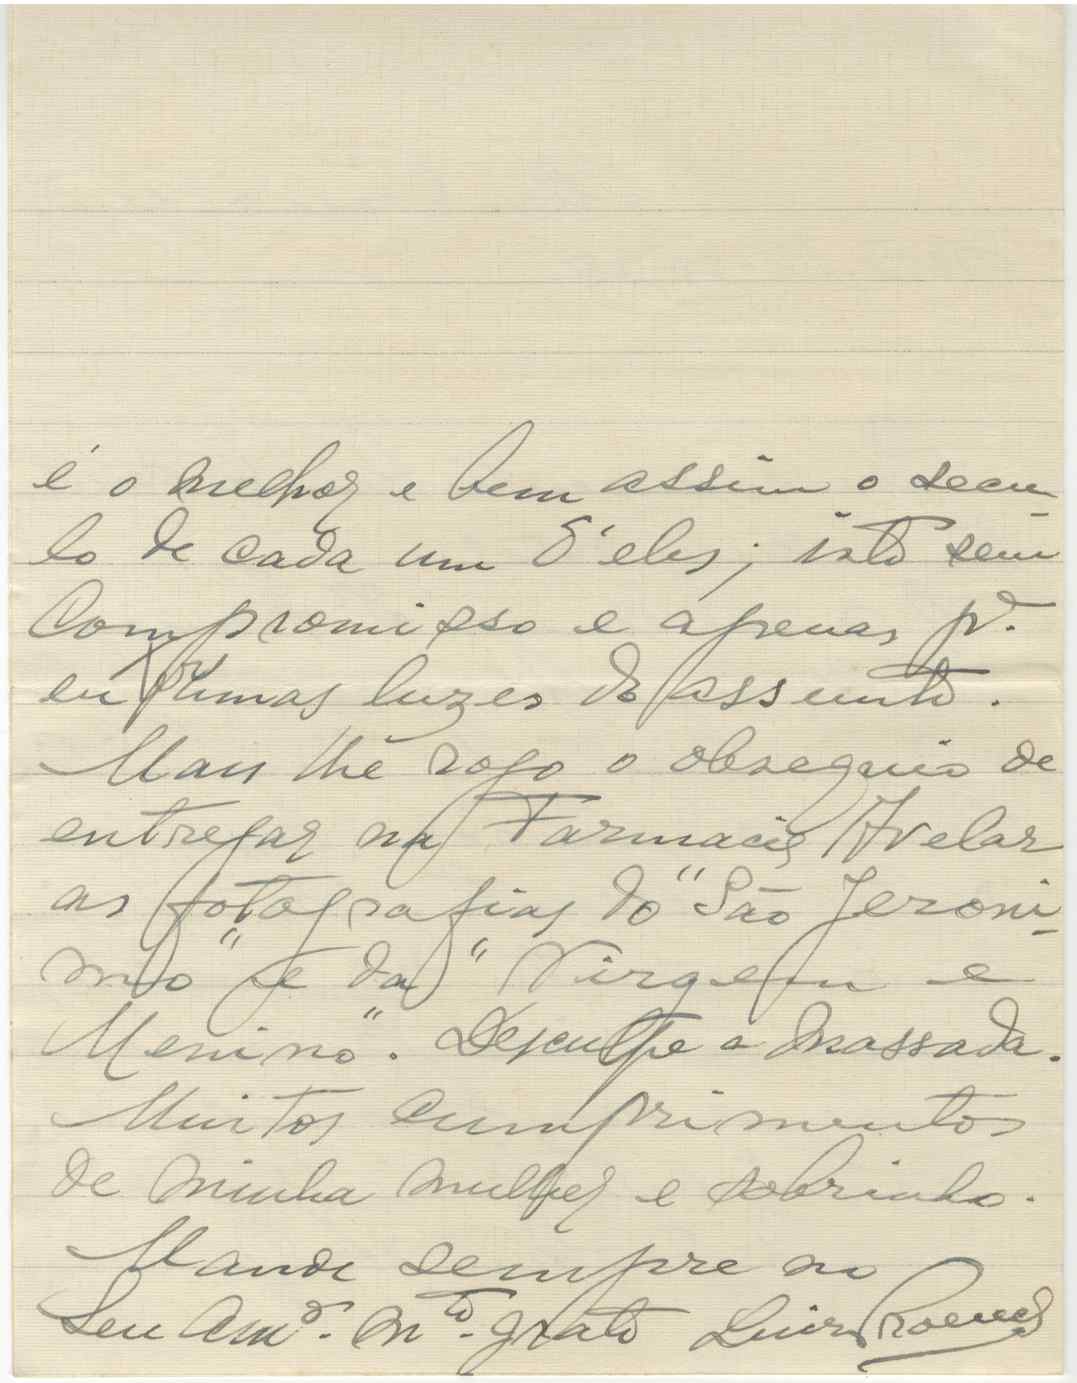 é o melhor e bem assim o secu-
lo de cada um d'eles; isto sem
compromisso e apenas pª.
eu umas luzes do assunto.
Mais lhe rogo o obsequio de
entregar na Farmacia Avelar
as fotografias do "São Jeroni-
mo" e da "Virgem e
Menino". Desculpe a massada.
Muitos cumprimentos
de minha mulher e sobrinho.
Mande sempre no
Seu Amº. mtº. grato Luis